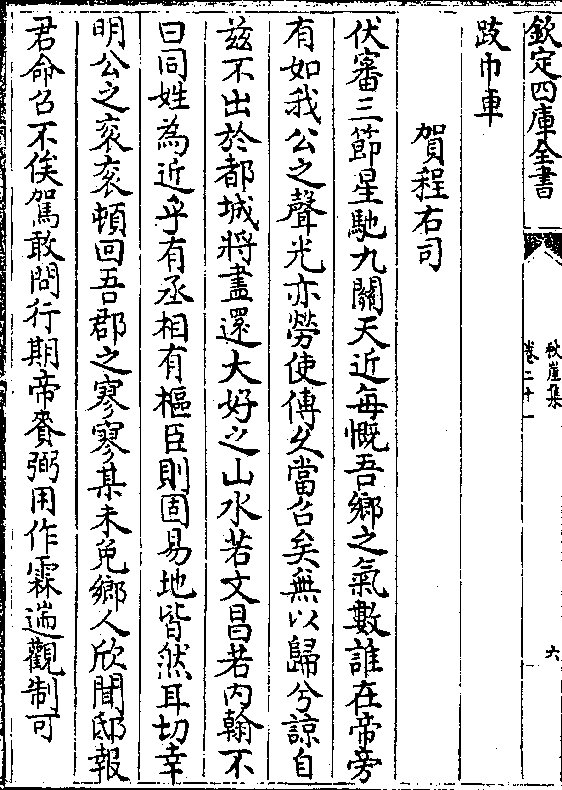 欽定四庫全書
秋崖集
卷二十一
六
跂巾車
賀程右司
伏審三節星馳九關天近每慨吾鄉之氣數誰在帝旁
有如我公之聲光亦勞使傳久當召矣無以歸兮諒自
兹不出於都城將盡還大好之山水若文昌若内翰不
曰同姓為近乎有丞相有樞臣則固易地皆然耳切幸
明公之衮衮頓回吾郡之寥寥某未免鄉人欣聞邸報
君命召不俟駕敢問行期帝賚弼用作霖遄觀制可